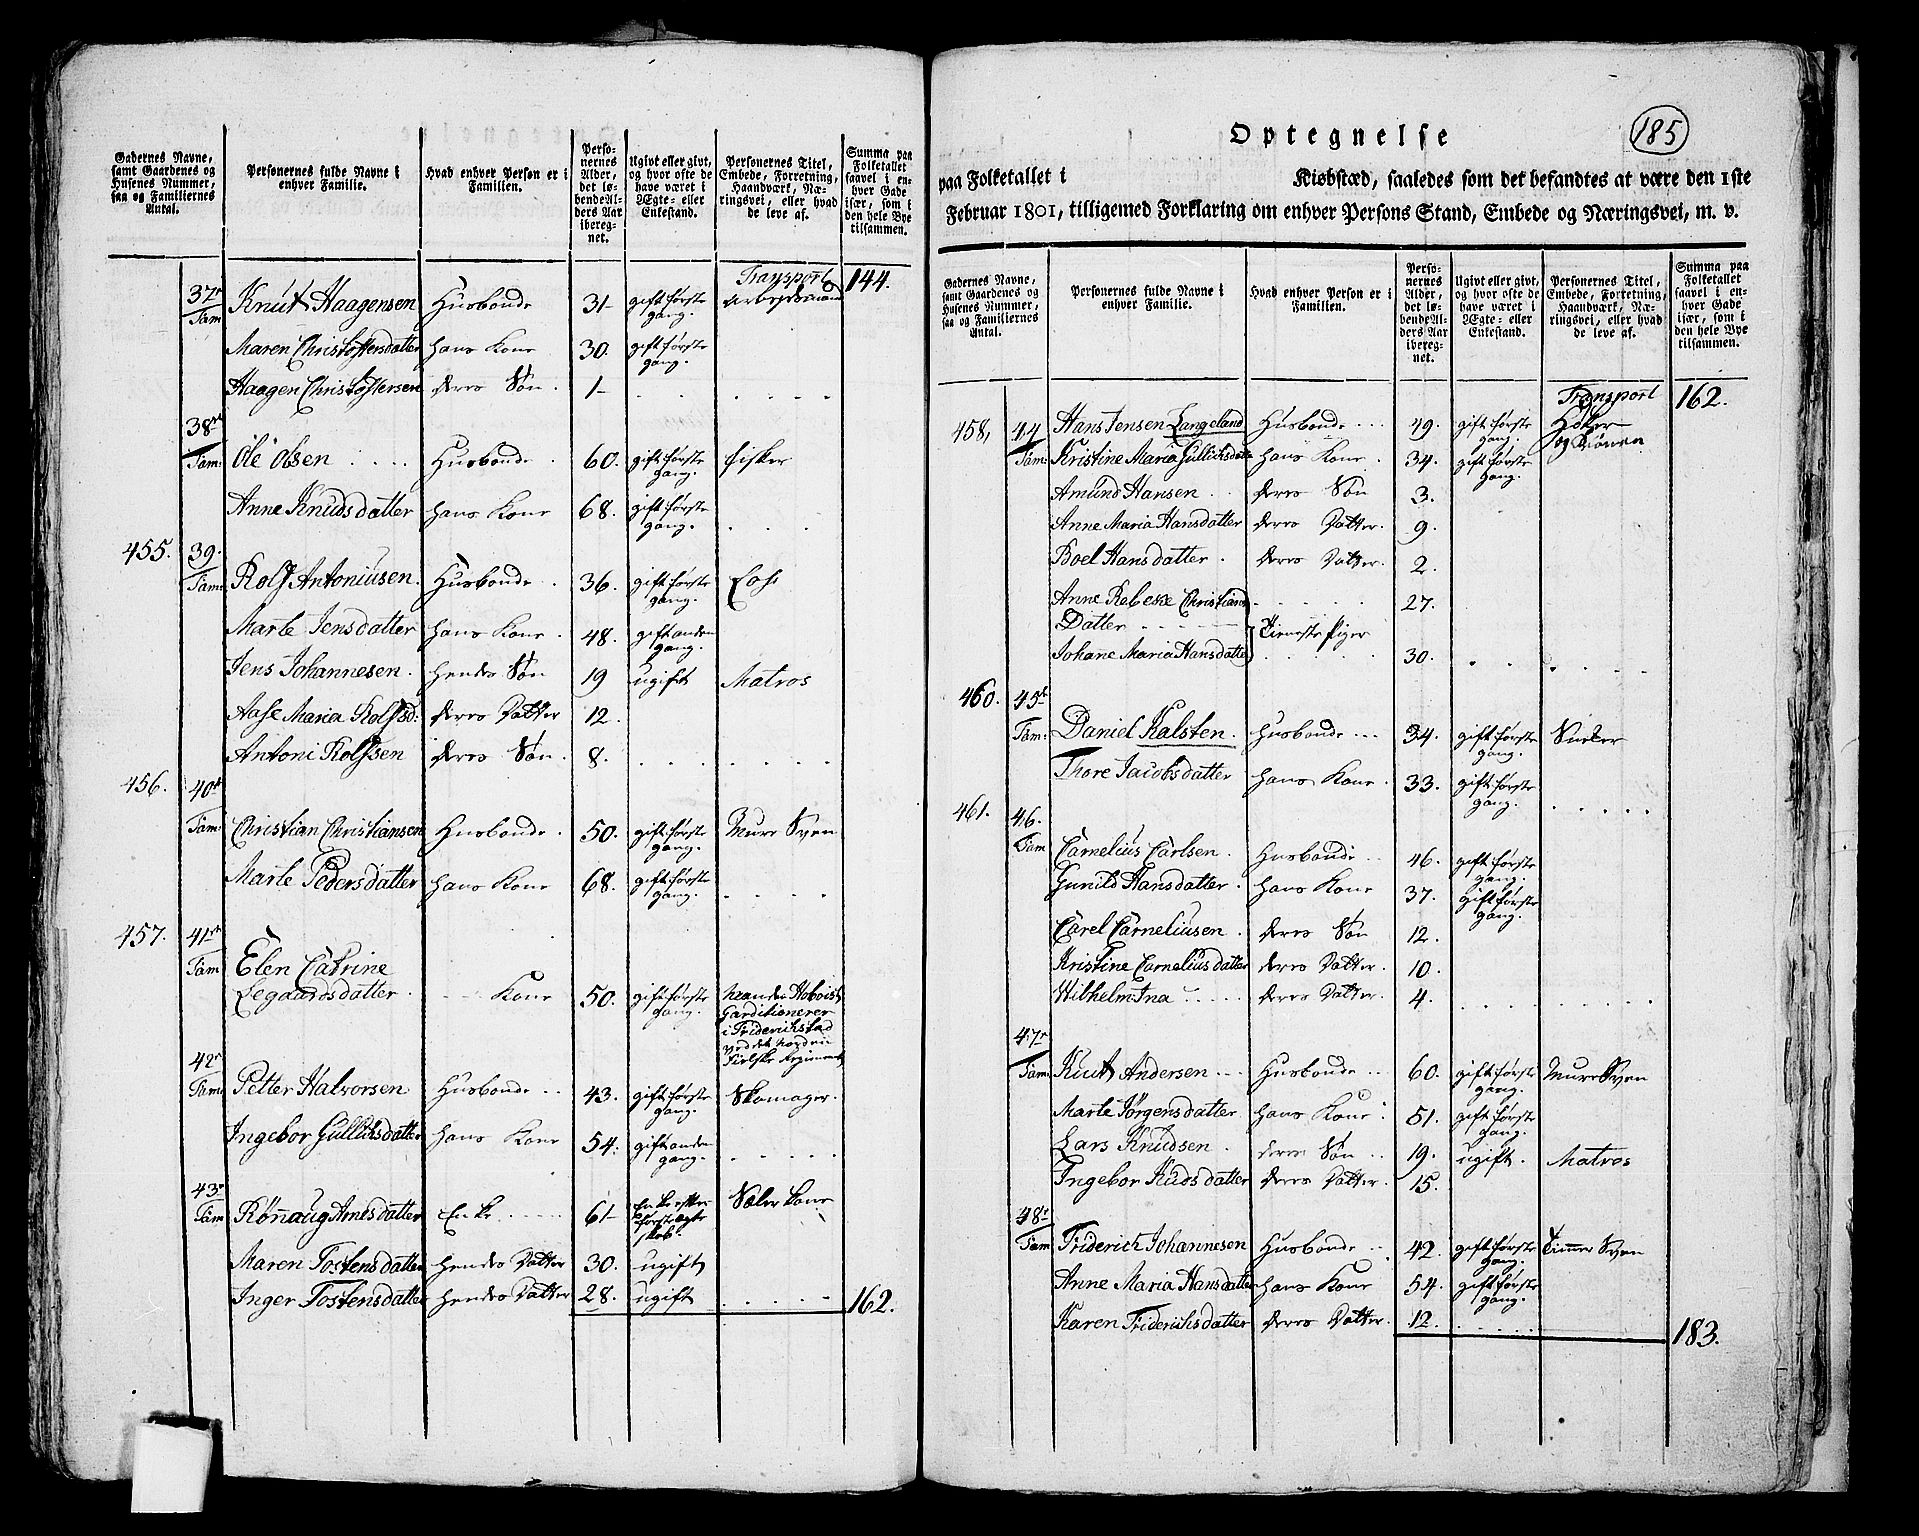 Gadernes Navne, samt Gaardenes og Husenes Nummer, saa og Familiernes Antal.
Personernes fulde Navne i enhver Familie.
Hvad enhver Person er i Familien.
Personernes Alder, det løbende Alders Aar iberegnet.
Ugivt eller givt, og hvor ofte de have været i Ægte- eller Enkestand.
Personernes Titel, Embede, Forretning, Haandværk, Næringsvei, eller hvad de leve af.
Summa paa Folketallet saavel i enhver Gade især, som i den hele Bye tilsammen.
Transport 144.
37te Fam Knut Haagensen Husbonde 31 gift første gang. Arbejdsmand
Maren Christoffersdatter hans Kone 30. gift første gang.
Haagen Christoffersen deres Søn 1
38te Fam: Ole Olsen Husbonde 60. gift første gang. fisker
Anne Knudsdatter hans Kone 68. gift første gang.
455. 39. Fam: Rolf Antoniusen. Husbonde 36. gift første gang. Lods
Marte Jensdatter hans Kone 48. gift anden gang.
Jens Johannesen. hendes Søn 19 ugift Matros
Aase Maria Rolfsd: deres Datter 12.
Antoni Rolfsen deres Søn 8.
456. 40de Fam: Christian Christiansen Husbonde 50. gift første gang. Muur Sven
Marte Pedersdatter hans Kone 68. gift første gang.
457. 41de Fam Elen Catrine
Legaardsdatter Kone 50. gift første gang.
Garditionerer
i Friderichstad
42de Fam: Petter Halvorsen Husbonde 43. gift første gang. Skomager.
Ingebor Gullichsdatter hans Kone 54. gift anden gang.
43de Fam Rønnaug Arnesdatter Enke 61 Enke efter første ægteskab.
Maren Tostensdatter hendes Datter 30. ugift
Inger Tostensdatter hendes Datter 28. ugift
162.
185
Optegnelse
paa Folketallet i Kiøbstæd, saaledes som det befandtes at være den 1ste
Februar 1801, tilligemed Forklaring om enhver Persons Stand, Embede og Næringsvei, m. v.
Gadernes Navne, samt Gaardenes og Husenes Nummer, saa og Familiernes Antal.
Personernes fulde Navne i enhver Familie.
Hvad enhver Person er i Familien.
Personernes Alder, det løbende Alders Aar iberegnet.
Ugivt eller givt, og hvor ofte de have været i Ægte- eller Enkestand.
Personernes Titel, Embede, Forretning, Haandværk, Næringsvei, eller hvad de leve af.
Summa paa Folketallet saavel i enhver Gade især, som i den hele Bye tilsammen.
Transport 162.
458, 44 Fam: Hans Jensen Langeland Husbonde 49. gift første gang. Høker
Kristine Maria Gullichsdatter hans Kone 34. gift første gang.
Amund Hansen deres Søn 3.
Anne Maria Hansdatter deres Datter. 9.
Boel Hansdatter. deres Datter. 2.
Anne Rebekke Christians 27.
Datter Tieneste Piger
Johane Maria Hansdatter 30.
460. 45de Fam: Daniel Kalsten. Husbonde 34. gift første gang. Snedker
Thore Jacobsdatter hans Kone. 33. gift første gang.
461. 46. Fam Cornelius Carlsen. Husbonde 46. gift første gang.
Gunild Hansdatter. hans Kone 37. gift første gang.
Carel Corneliusen. deres Søn 12.
Kristine Corneliusdatter deres Datter. 10.
Wilhelmina deres Datter. 4.
47de Fam: Knut Andersen Husbonde 60. gift første gang. MuurSven
Marte Jørgensdatter hans Kone 51. gift første gang.
Lars Knudsen. deres Søn 19. ugift. Matros
Ingebor Kudsdatter deres Datter. 15.
48de Fam Friderich Johannesen Husbonde 42. gift første gang. Timmer Sven
Anne Maria Hansdatter hans Kone 54. gift første gang.
Karen Friderichsdatter deres Datter. 12.
183.